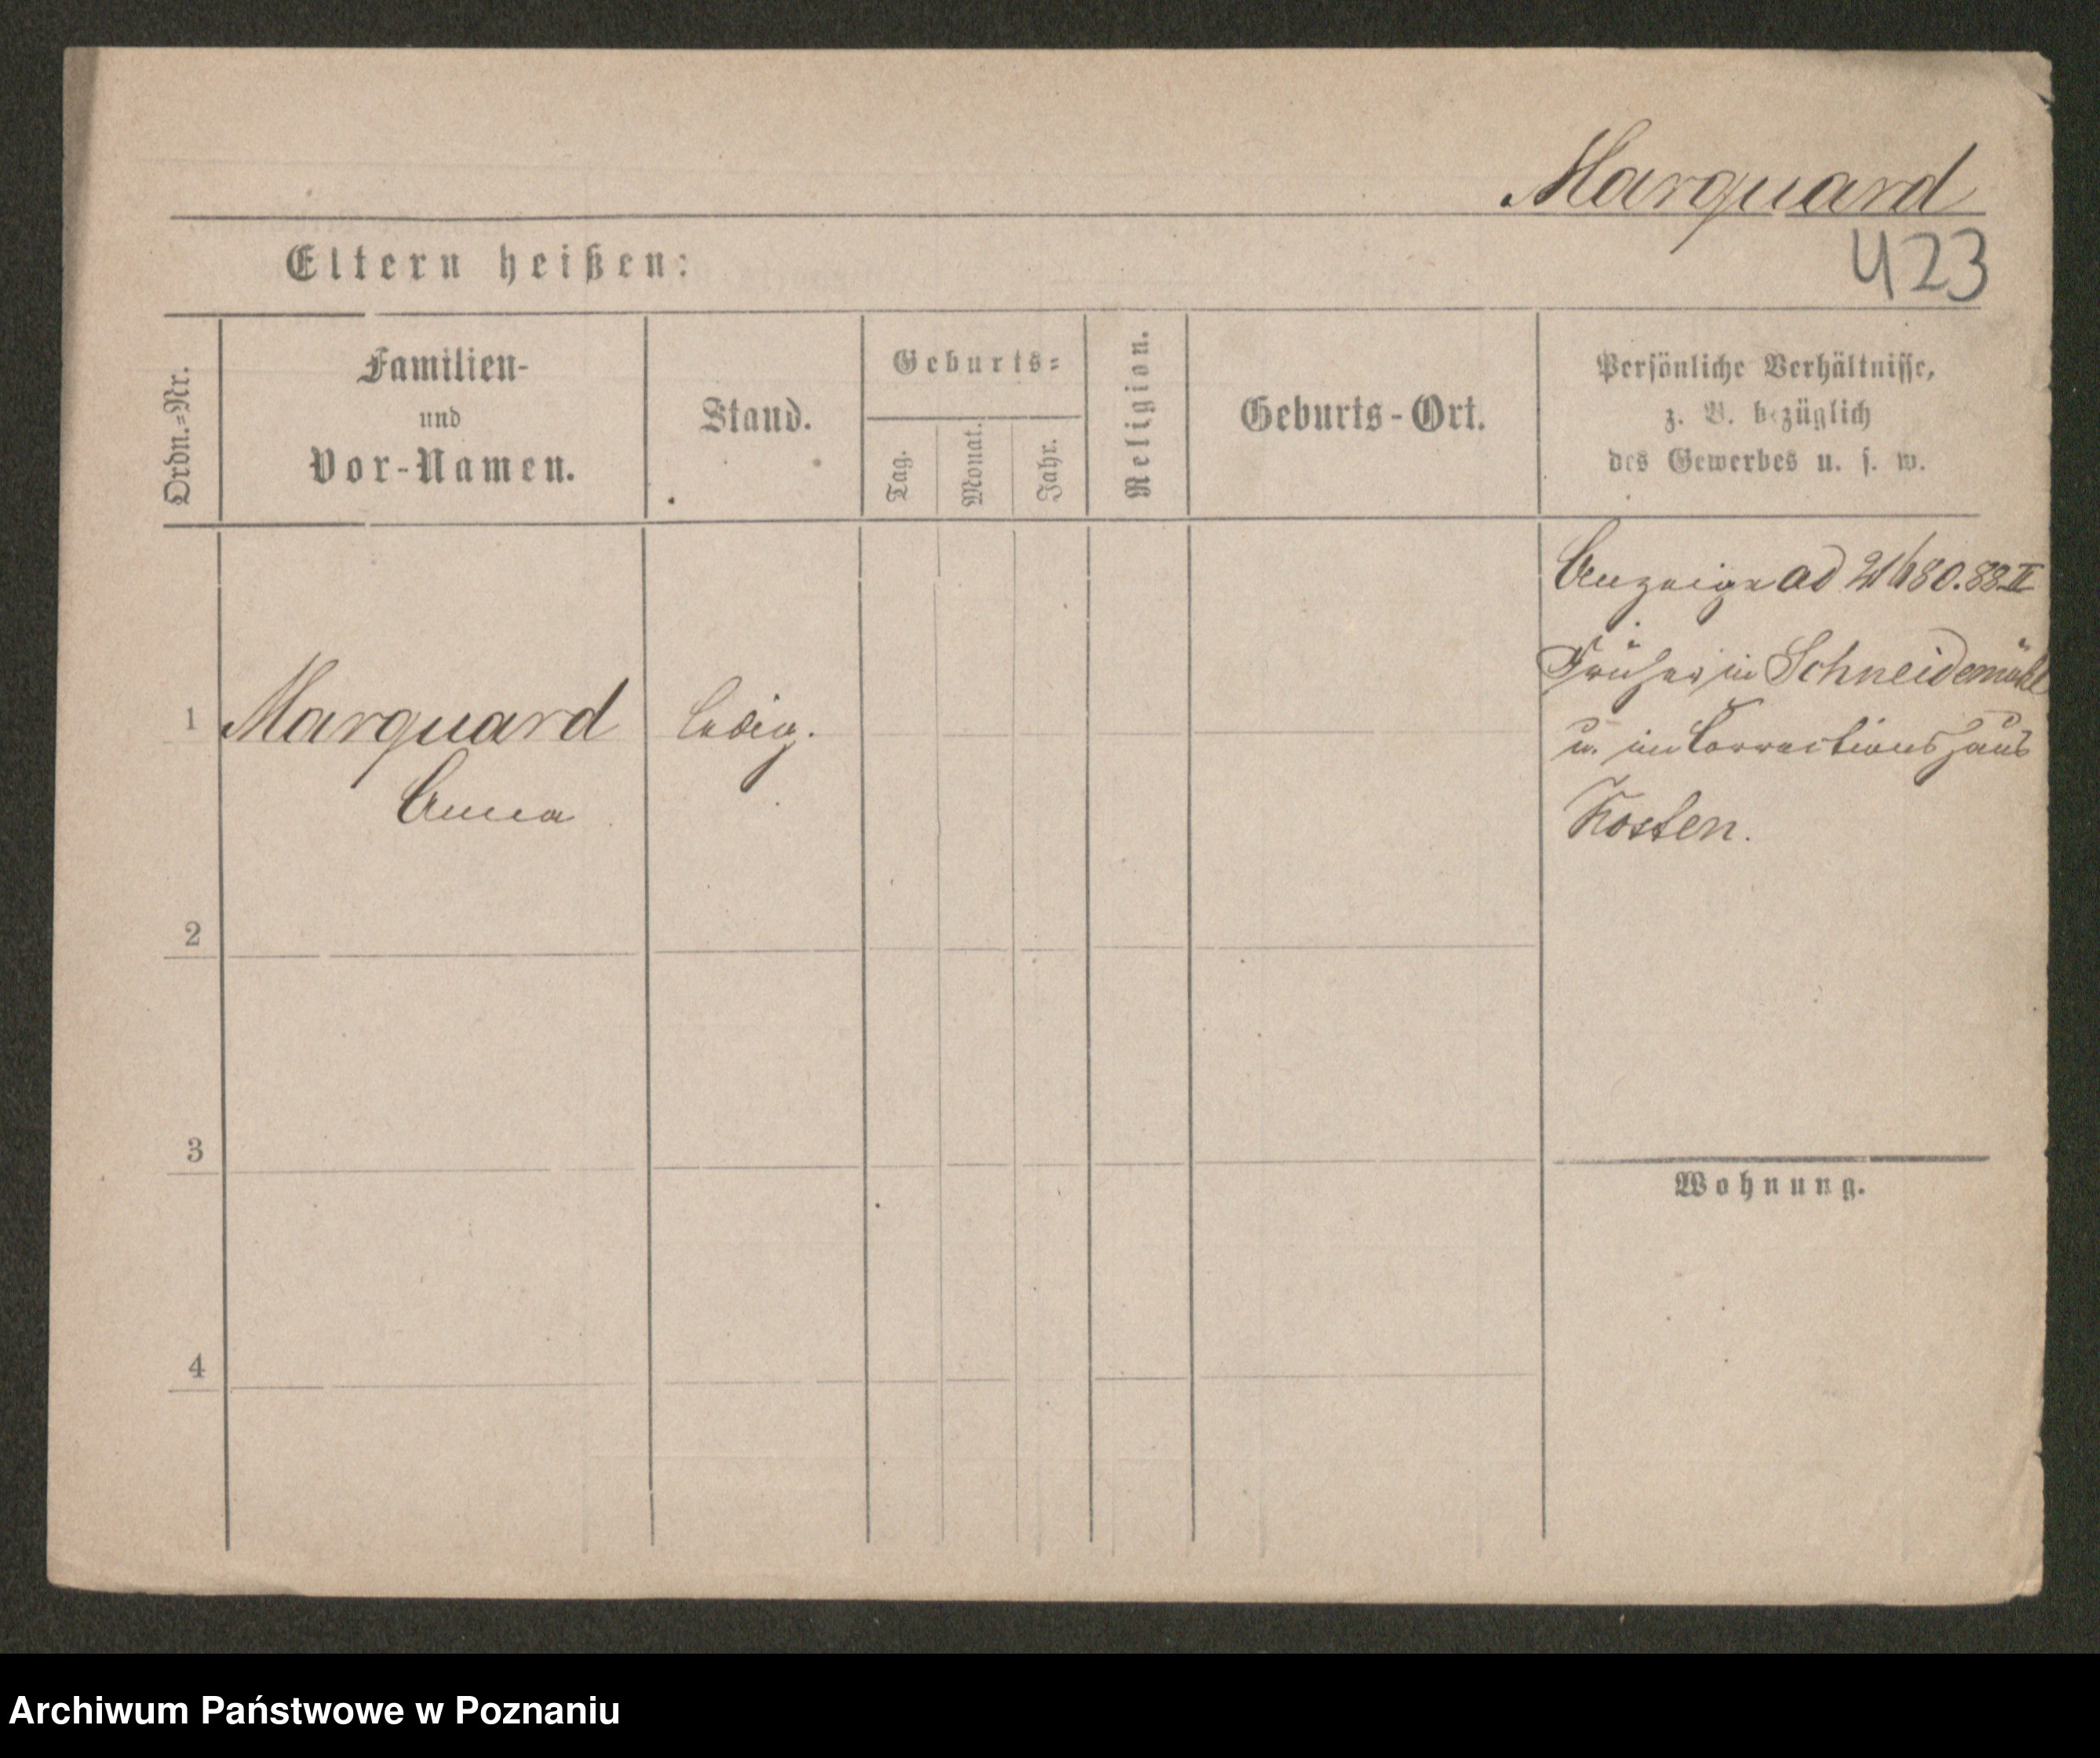 Marquard
423
Eltern heißen:
Ordn.=Nr.
Familien-
und
Vor-Namen.
Stand.
Geburts=
Tag.
Monat.
Jahr.
Religion.
Geburts-Ort.
Persönliche Verhältnisse,
z. B. bezüglich
des Gewerbes u. s. w.
1
Marquard
Anna
ledig.
Anzeige ad 88 II
Früher in Schneidemühl
u. im Correctionshaus
Kosten.
2
3
4
Wohnung.
Archiwum Państwowe w Poznaniu